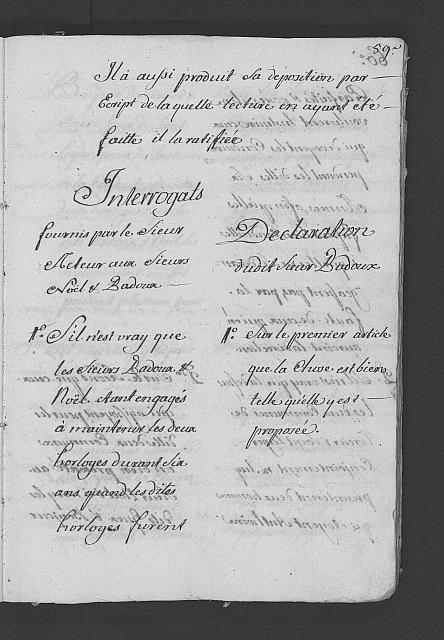 59.
Il à aussi produit sa deposition par
Ecript de laquelle lecture en ayant eté
faitte il la ratifiée
Interrogats
fournis par le Sieur
Acteur aux Sieurs
Noël & Badoux
1o. S'il n'est vray que
les Sieurs Badoux &
Noël etant engagés
à maintenir les deux
horloges durant six
ans quand les dites
horloges furent
Declaration
dudit Sieur Badoux
1o. Sur le premier article
que la Chose est bien
telle quelle y est
proposée.